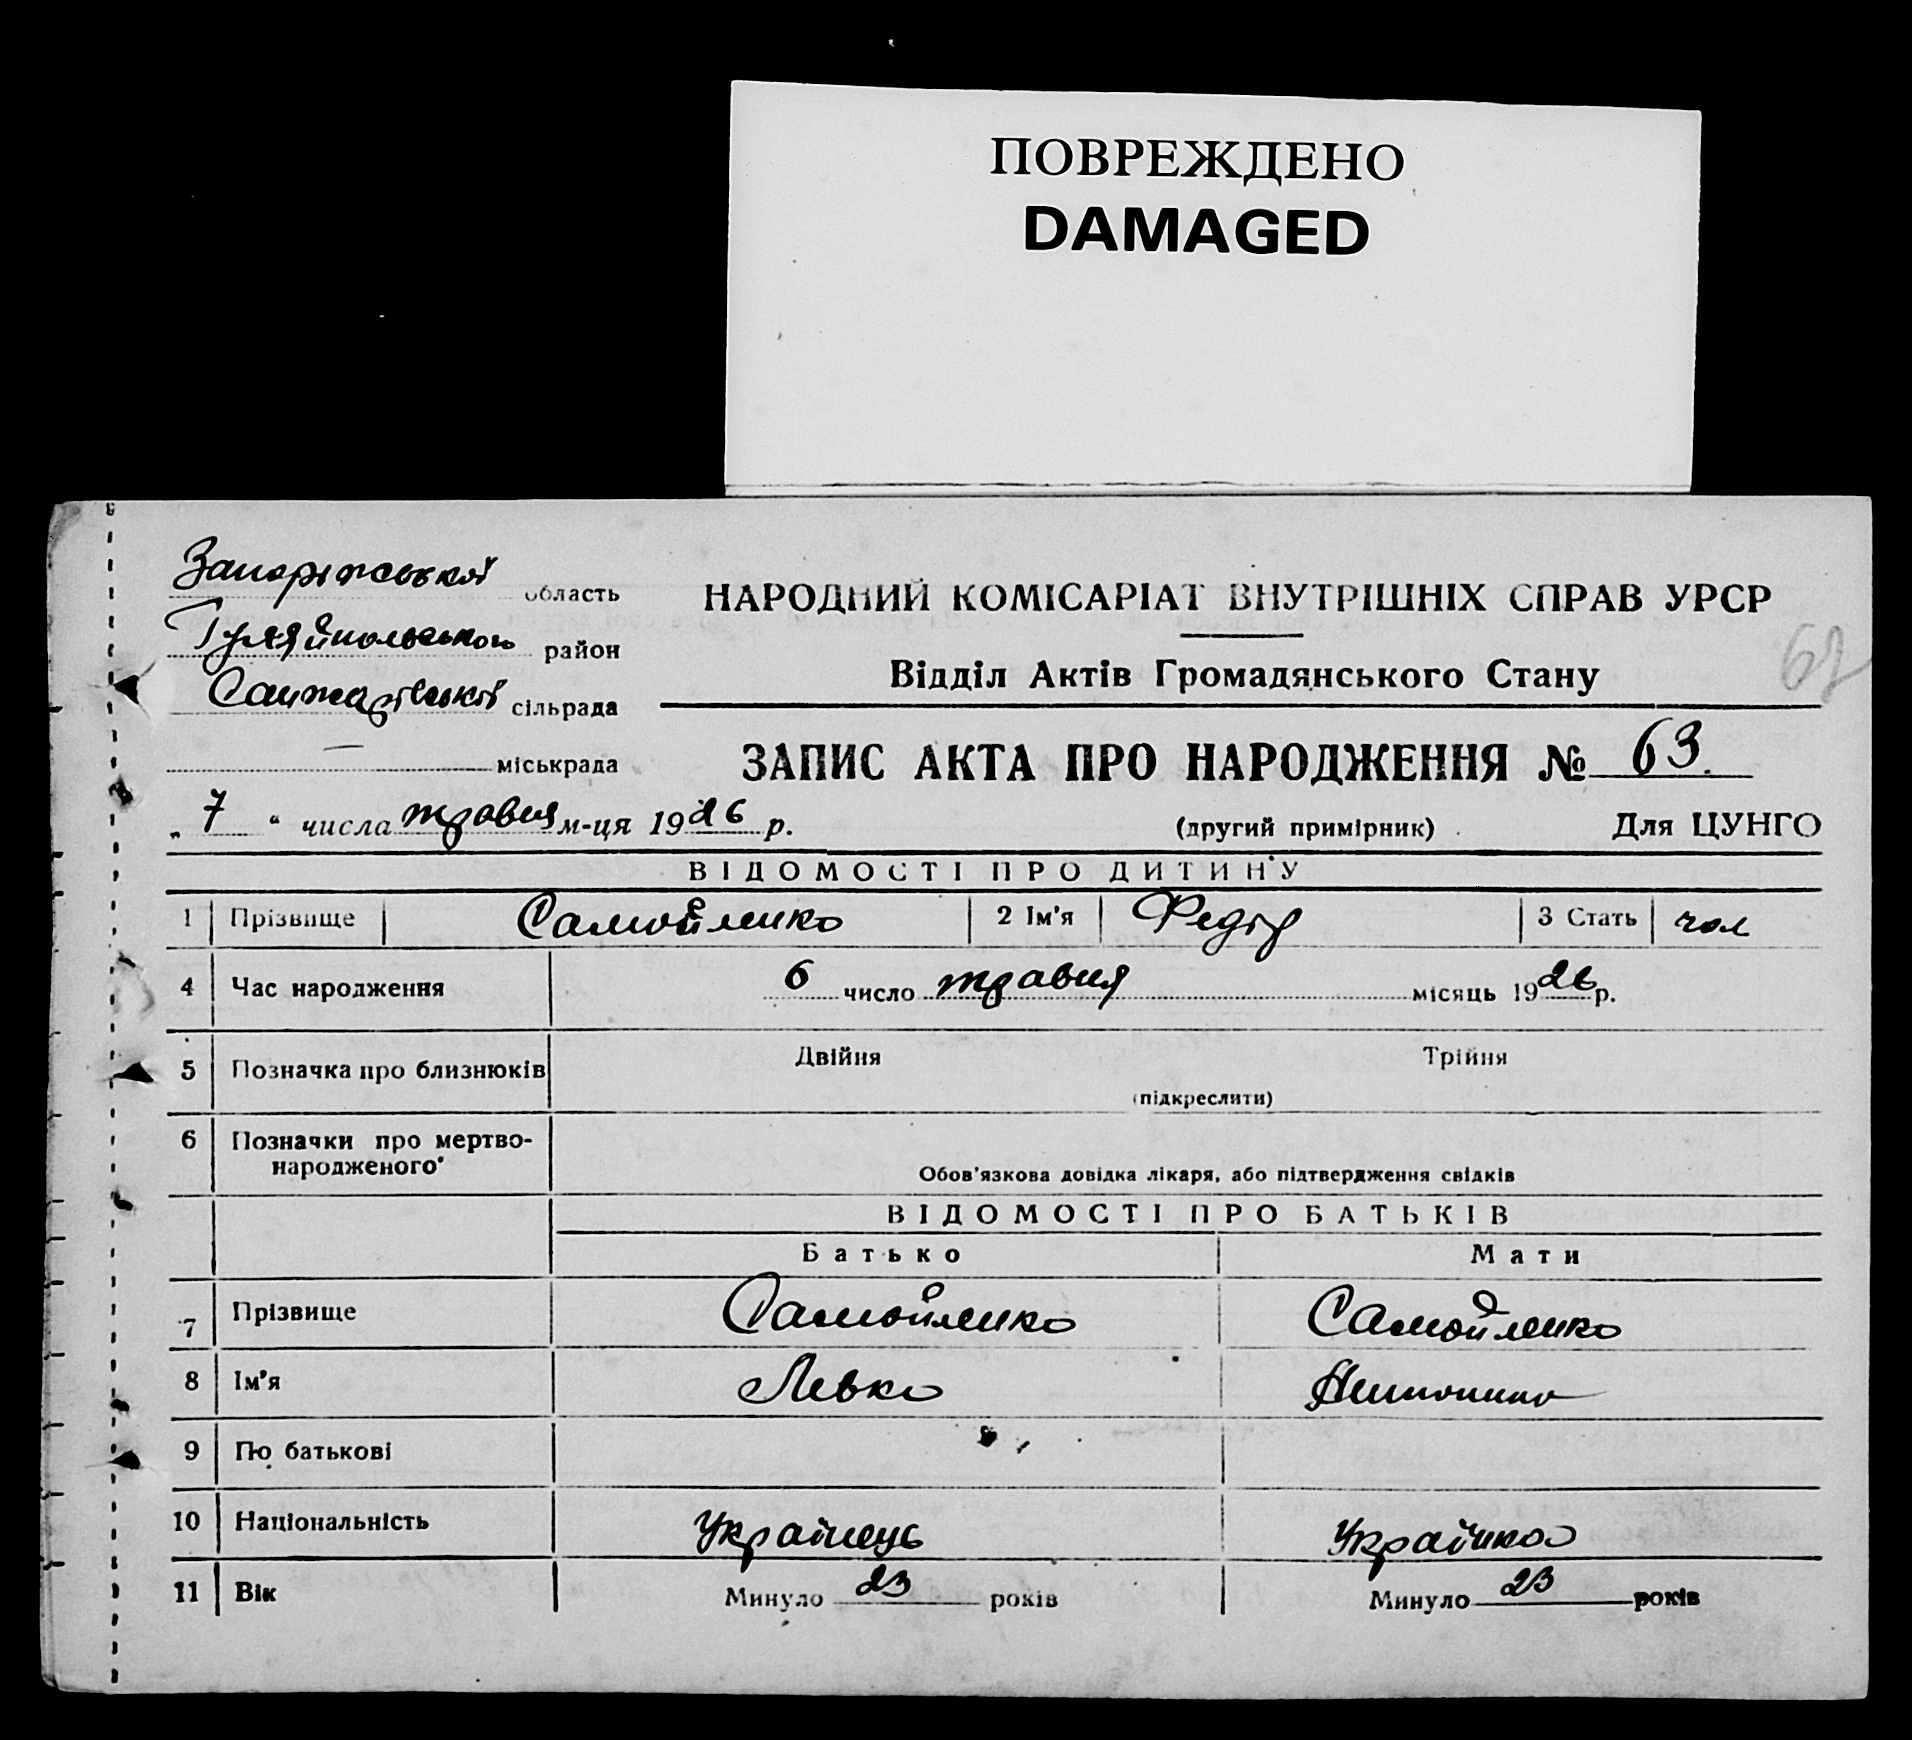 ПОВРЕЖДЕНО
DAMAGED
Запоріжської область
Гуляйпольського район
сільрада
міськрада
НАРОДНИЙ КОМІСАРІАТ ВНУТРІШНІХ СПРАВ УРСР
Відділ Актів Громадянського Стану
ЗАПИС АКТА ПРО НАРОДЖЕННЯ № 63.
„ 7 “ числа травня м-ця 1926 р.
(другий примірник) Для ЦУНГО
ВІДОМОСТІ ПРО ДИТИНУ
1 Прізвище Самойленко 2 Ім'я Федір 3 Стать чол
4 Час народження 6 число травня місяць 1926 р.
5 Позначка про близнюків Двійня Трійня
(підкреслити)
6 Позначки про мертво-
народженого
Обов'язкова довідка лікаря, або підтвердження свідків
ВІДОМОСТІ ПРО БАТЬКІВ
Батько Мати
7 Прізвище Самойленко Самойленко
8 Ім'я Левко
9 По батькові
10 Національність Українець Українка
11 Вік Минуло 23 років Минуло 23 років